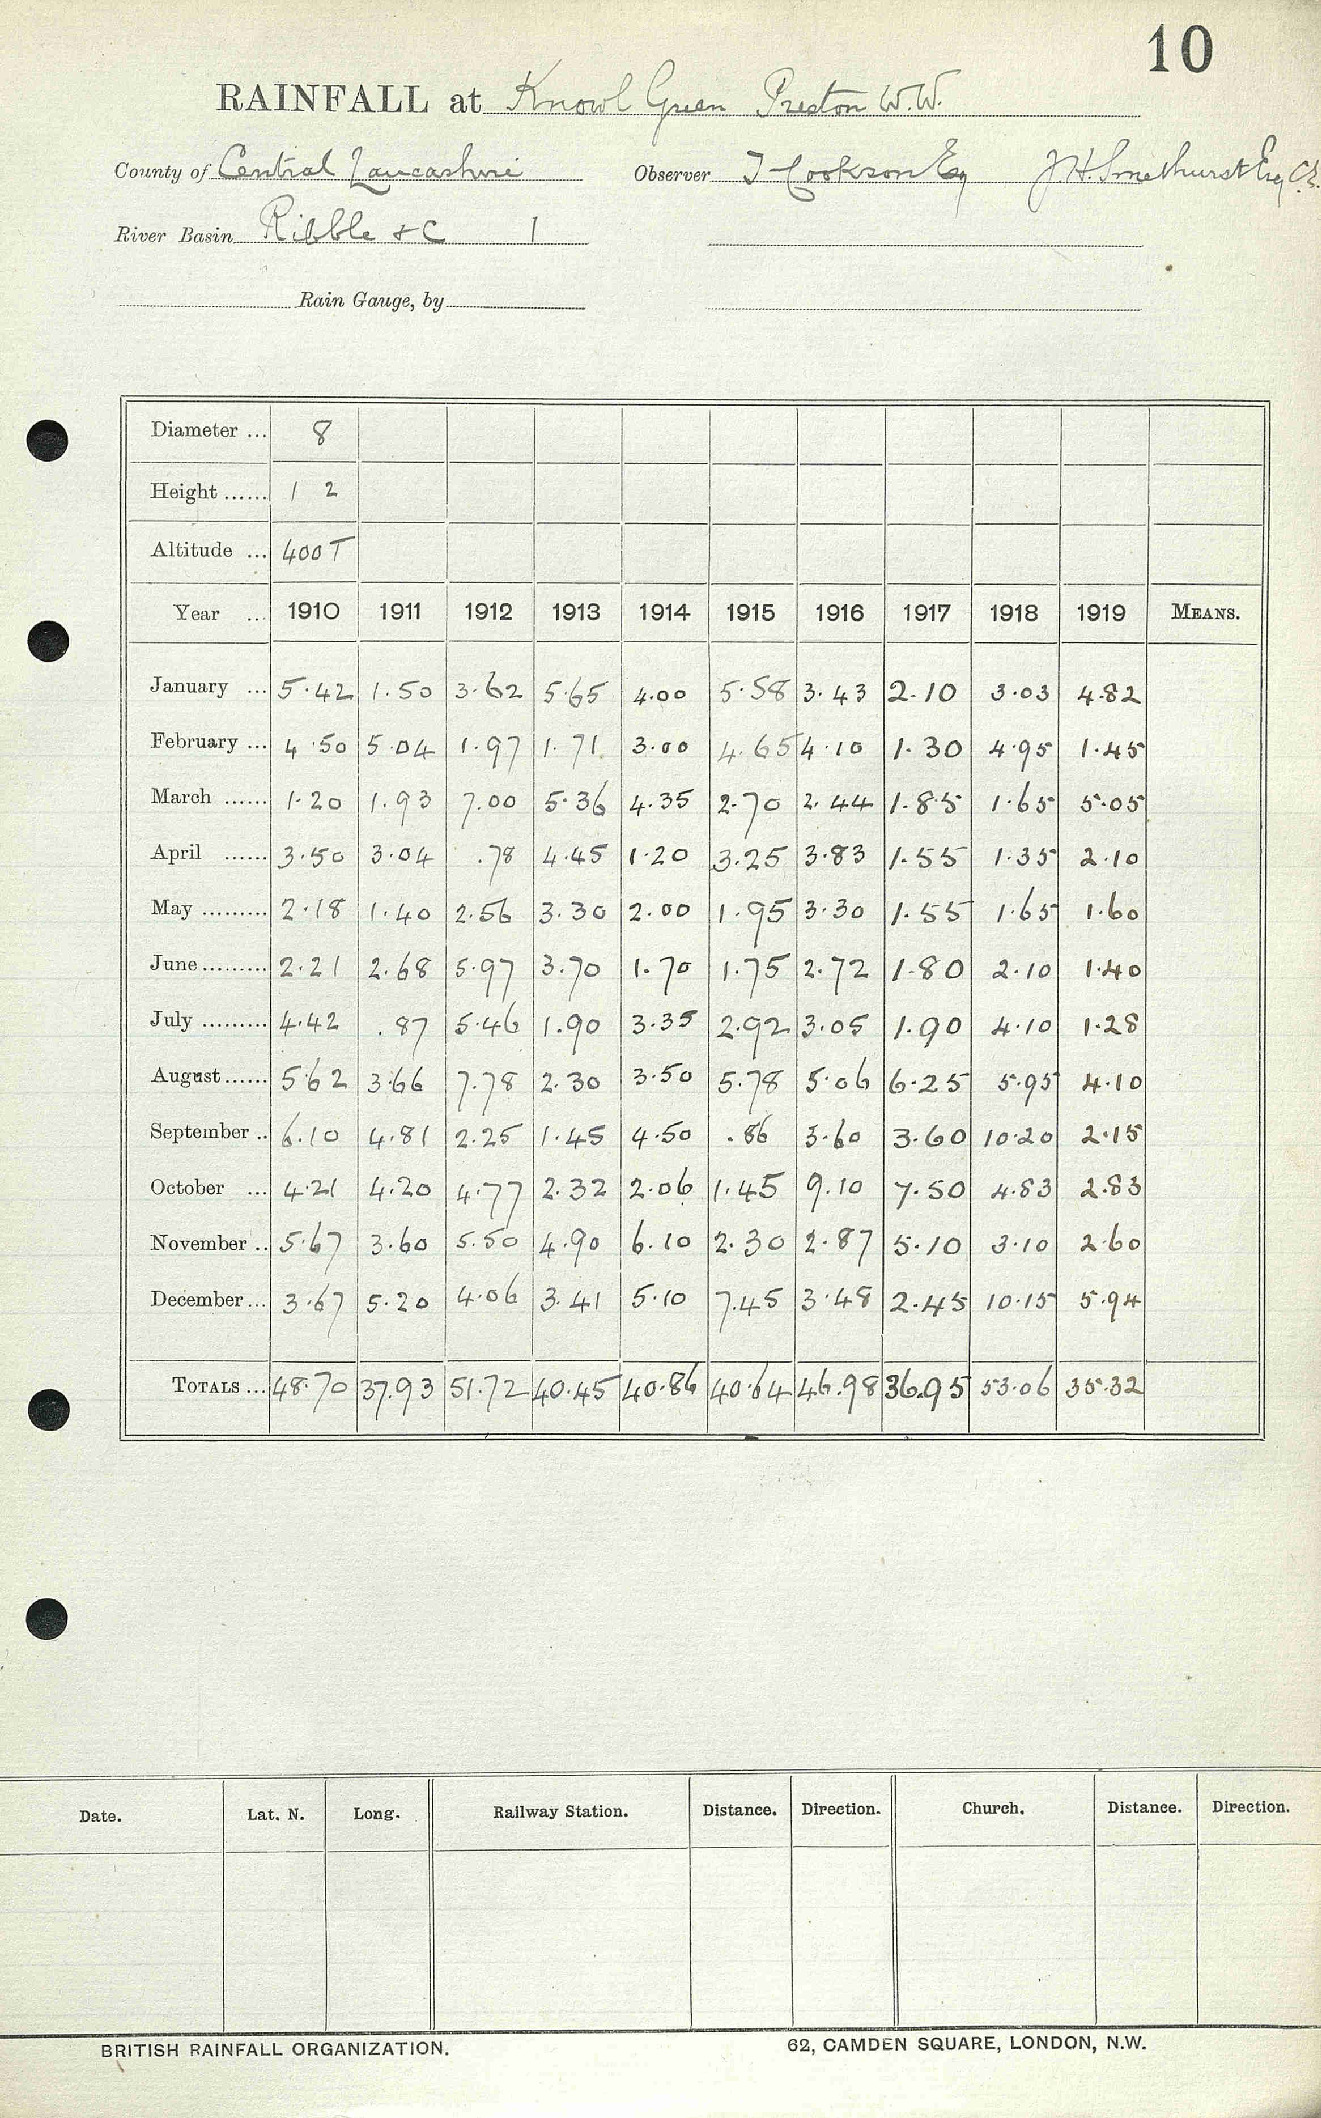 10
RAINFALL at Knowl Green Preston W.W.
County of Central Lancashire Observer T Cookson Esq J H Smethurst Esq C.E.
River Basin Ribble &c 1
Rain Gauge, by
Diameter ... 8
Height ...... 1 2
Altitude ... 400 T
Year ... 1910 1911 1912 1913 1914 1915 1916 1917 1918 1919 MEANS.
January ... 5.42 1.50 3.62 5.65 4.00 5.58 3.43 2.10 3.03 4.82
February ... 4.50 5.04 1.97 1.71 3.00 4.65 4.10 1.30 4.95 1.45
March ...... 1.20 1.93 7.00 5.36 4.35 2.70 2.44 1.85 1.65 5.05
April ...... 3.50 3.04 .78 4.45 1.20 3.25 3.83 1.55 1.35 2.10
May ......... 2.18 1.40 2.56 3.30 2.00 1.95 3.30 1.55 1.65 1.60
June ......... 2.21 2.68 5.97 3.70 1.70 1.75 2.72 1.80 2.10 1.40
July ......... 4.42 .87 5.46 1.90 3.35 2.92 3.05 1.90 4.10 1.28
August ...... 5.62 3.66 7.78 2.30 3.50 5.78 5.06 6.25 5.95 4.10
September .. 6.10 4.81 2.25 1.45 4.50 .86 3.60 3.60 10.20 2.15
October ... 4.21 4.20 4.77 2.32 2.06 1.45 9.10 7.50 4.83 2.83
November .. 5.67 3.60 5.50 4.90 6.10 2.30 2.87 5.10 3.10 2.60
December ... 3.67 5.20 4.06 3.41 5.10 7.45 3.48 2.45 10.15 5.94
TOTALS ... 48.70 37.93 51.72 40.45 40.86 40.64 46.98 36.95 53.06 35.32
Date. Lat. N. Long. Railway Station. Distance. Direction. Church. Distance. Direction.
BRITISH RAINFALL ORGANIZATION. 62, CAMDEN SQUARE, LONDON, N.W.